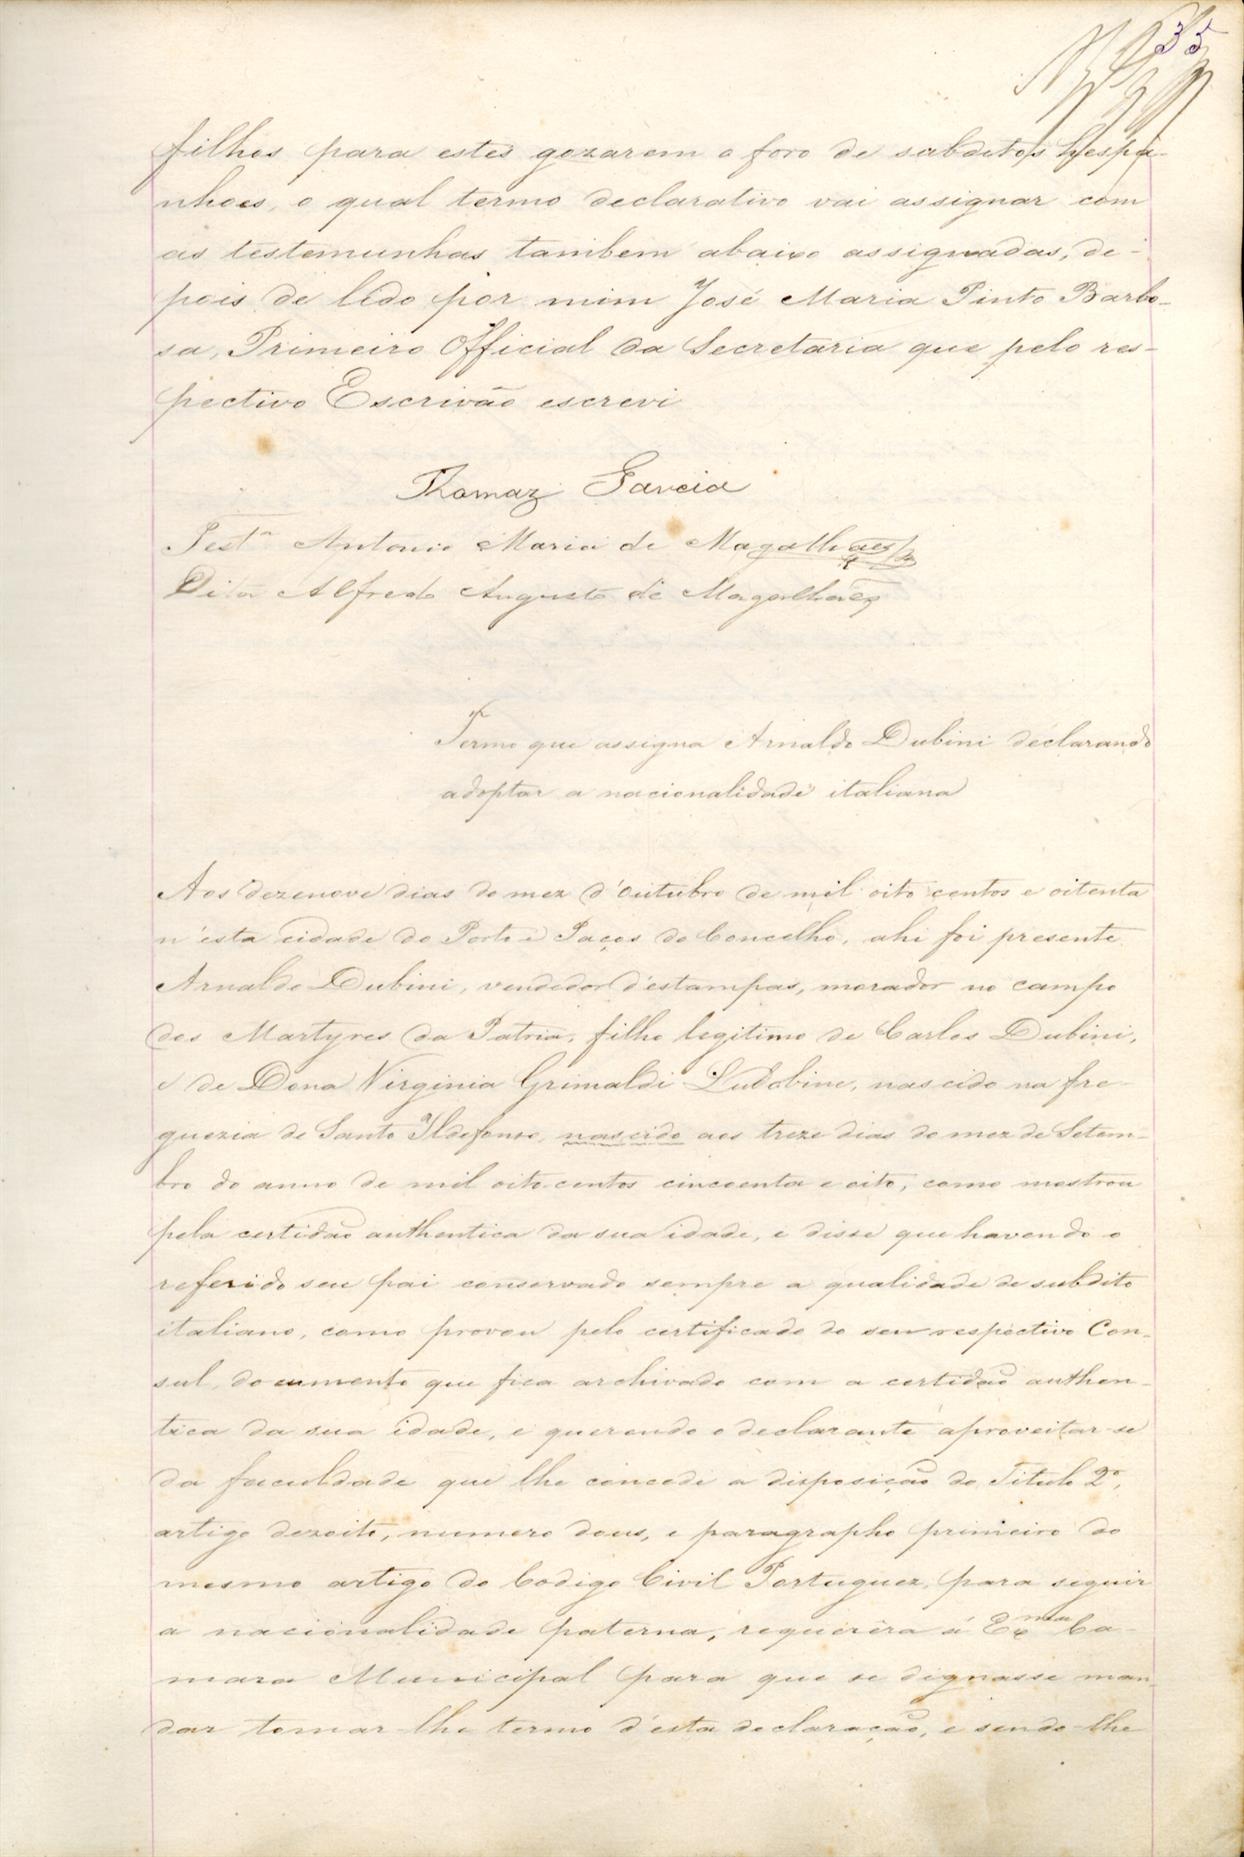 35
filhos para estes gozarem o foro de subditos hespa-
nhoes, o qual termo declarativo vai assignar com
as testemunhas tambem abaixo assignadas, de-
pois de lido por mim José Maria Pinto Barbo-
sa, Primeiro Official da Secretaria que pelo res-
pectivo Escrivão escrevi
Thomaz Garcia
Testª Antonio Maria de Magalhaes
Dita Alfredo Augusto de Magalhaes
Termo que assigna Arnaldo Dubini declarando
adoptar a nacionalidade italiana
Aos dezenove dias do mez d'Outubro de mil oito centos e oitenta
n'esta cidade do Porto e Paços do Concelho, ahi foi presente
Arnaldo Dubini, vendedor d'estampas, morador no campo
dos Martyres da Patria, filho legitimo de Carlos Dubini,
e de Dona Virginia Grimaldi Ludobine, nascido na fre-
guezia de Santo Ildefonso, nascido aos treze dias do mez de Setem-
bro do anno de mil oito centos cincoenta e oito, como mostrou
pela certidão authentica da sua idade, e disse que havendo o
referido seu pai conservado sempre a qualidade de subdito
italiano, como provou pelo certificado do seu respectivo Con-
sul, documento que fica archivado com a certidão authen-
tica da sua idade, e querendo o declarante aproveitar-se
da faculdade que lhe concede a disposição do Titulo 2º,
artigo dezoito, numero dous, e paragrapho primeiro do
mesmo artigo do Codigo Civil Portuguez, para seguir
a nacionalidade paterna, requerêra á Exma Ca-
mara Municipal para que se dignasse man-
dar tomar-lhe termo d'esta declaração, e sendo-lhe